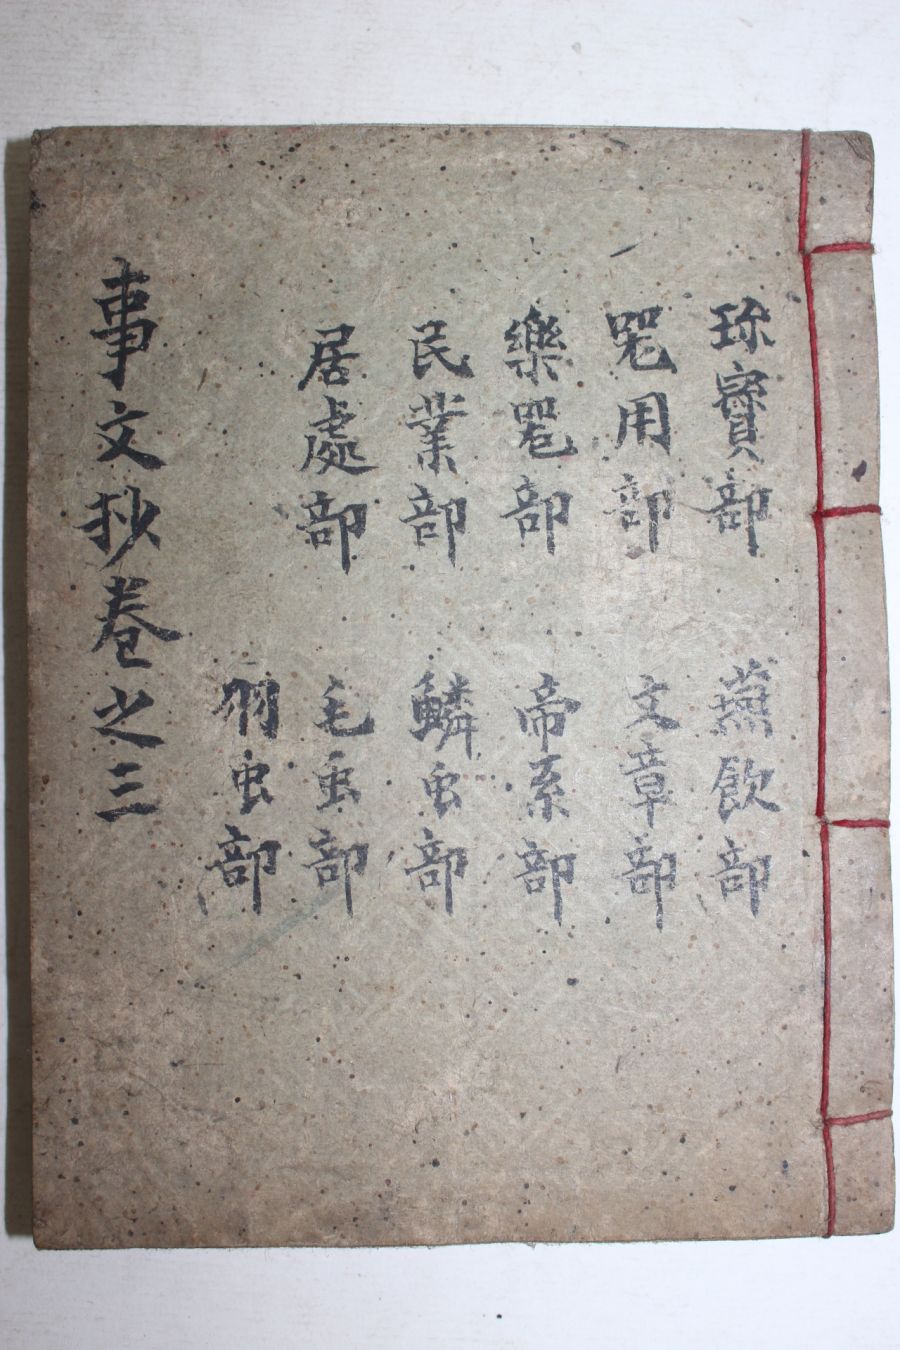 珎寶部
噐用部
樂噐部
民業部
居處部
燕飮部
文章部
帝系部
鱗虫部
毛虫部
羽虫部
事文抄卷之三